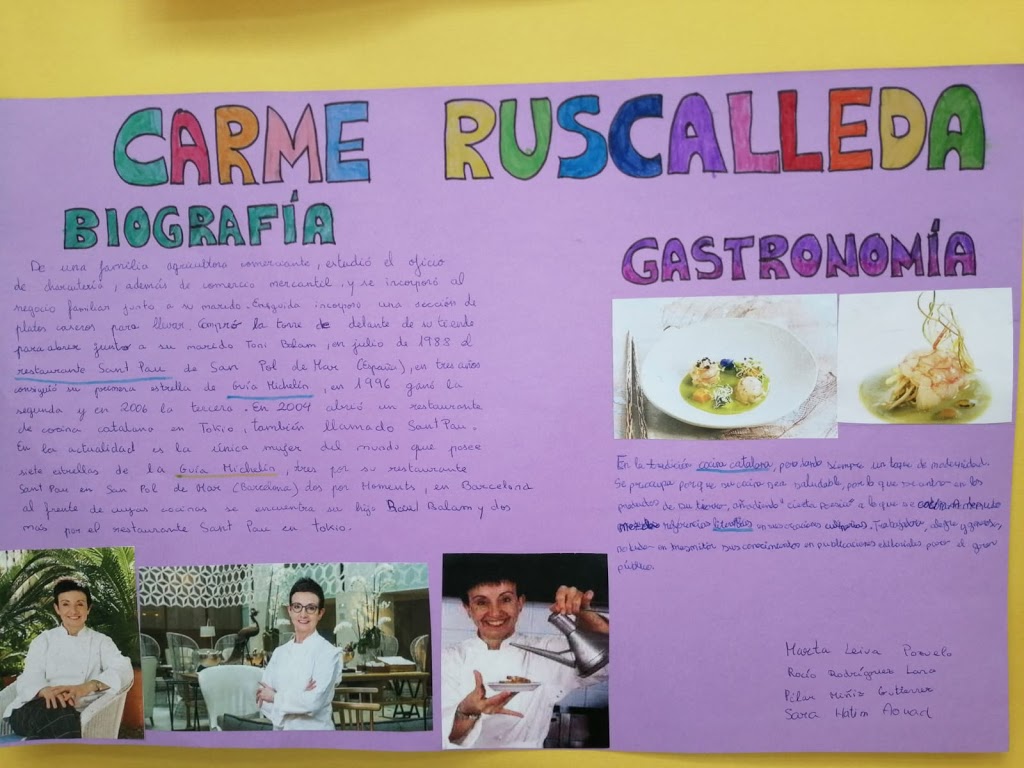 CARME RUSCALLEDA
BIOGRAFÍA
De una familia agricultora comerciante, estudió el oficio
de charcutería, además de comercio mercantil y se incorporó al
negocio familiar junto a su marido. Enseguida incorporó una sección de
platos caseros para llevar. Compró la torre de delante de su tienda
para abrir junto a su marido Toni Balam, en julio de 1988 el
restaurante Sant Pau de San Pol de Mar (España), en tres años
consiguió su primera estrella de Guía Michelín, en 1996 ganó la
segunda y en 2006 la tercera. En 2004 abrió un restaurante
de cocina catalana en Tokio, también llamado Sant Pau.
En la actualidad es la única mujer del mundo que posee
siete estrellas de la Guía Michelín, tres por su restaurante
Sant Pau en San Pol de Mar (Barcelona) dos por Moments, en Barcelona
al frente de cuyas cocinas se encuentra su hijo Balam y dos
mas por el restaurante Sant Pau en Tokio.
GASTRONOMÍA
En la tradición cocina catalana, aportando siempre un toque de modernidad.
Se preocupa porque su cocina sea saludable, por lo que se centra en los
productos de su tierra, añadiendo "cierta poesía" a lo que se
referencias literarias en sus creaciones culinarias. Trabajadora, alegre y generosa,
no duda en transmitir sus conocimientos en publicaciones editoriales para el gran
público.
Marta Leiva Pozuelo
Rocío Rodríguez Lara
Pilar Muñiz Gutierrez
Sara Hatim Aouad